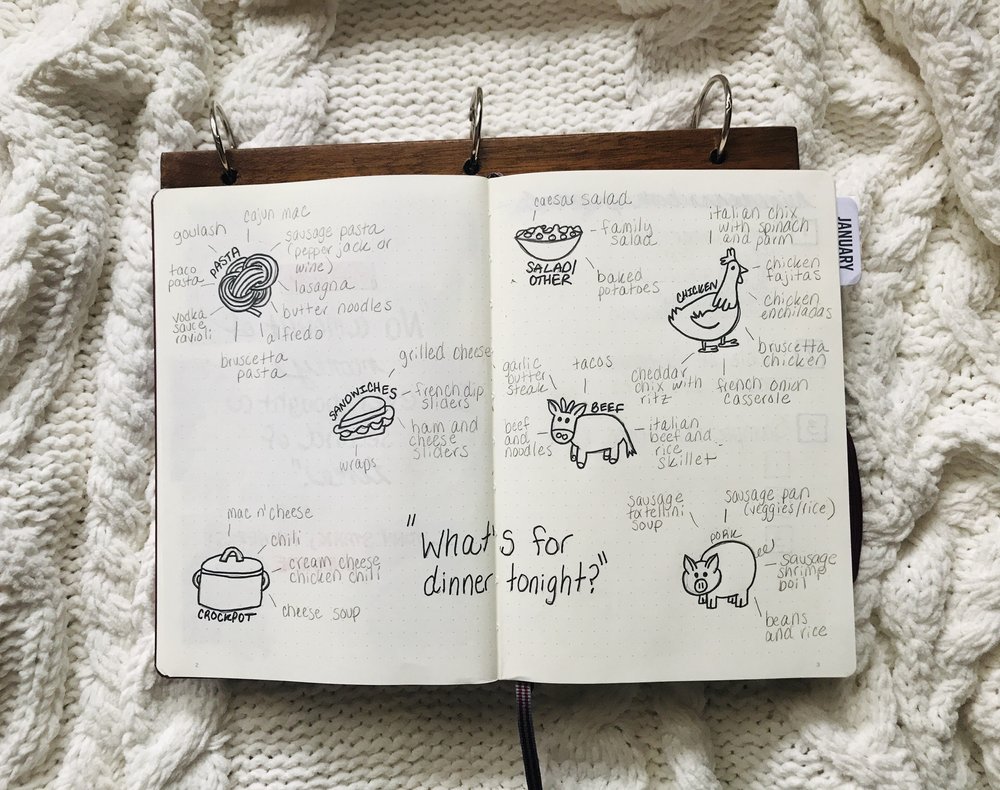 cajun mac
goulash
sausage pasta
(pepper jack or
wine)
PASTA
taco
pasta
lasagna
butter noodles
vodka
sauce
ravioli
alfredo
bruscetta
pasta
grilled cheese
SANDWICHES
french dip
sliders
ham and
cheese
sliders
wraps
mac n' cheese
chili
cream cheese
chicken chili
cheese soup
CROCKPOT
"What's for
dinner tonight?"
2
caesar salad
family
salad
SALAD/
OTHER
baked
potatoes
italian chix
with spinach
and parm
CHICKEN
chicken
fajitas
chicken
enchiladas
bruscetta
chicken
french onion
casserole
cheddar
chix with
ritz
garlic
butter
steak
tacos
BEEF
beef
and
noodles
italian
beef and
rice
skillet
sausage
tortellini
soup
sausage pan
(veggies/rice)
PORK
sausage
shrimp
boil
beans
and rice
3
JANUARY